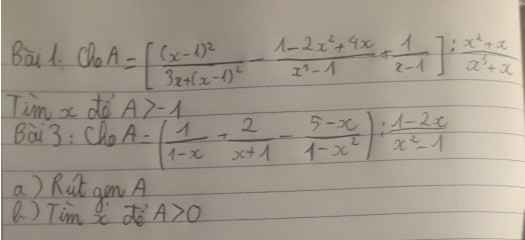 Bài 1. Cho A = [ (x-1)²/(3x+(x-1)²) - (1-2x²+4x)/(x³-1) + 1/(x-1) ] : (x²+x)/(x³+x)
Tìm x để A>-1
Bài 3: Cho A = ( 1/(1-x) + 2/(x+1) - (5-x)/(1-x²) ) : (1-2x)/(x²-1)
a) Rút gọn A
b) Tìm x để A>0